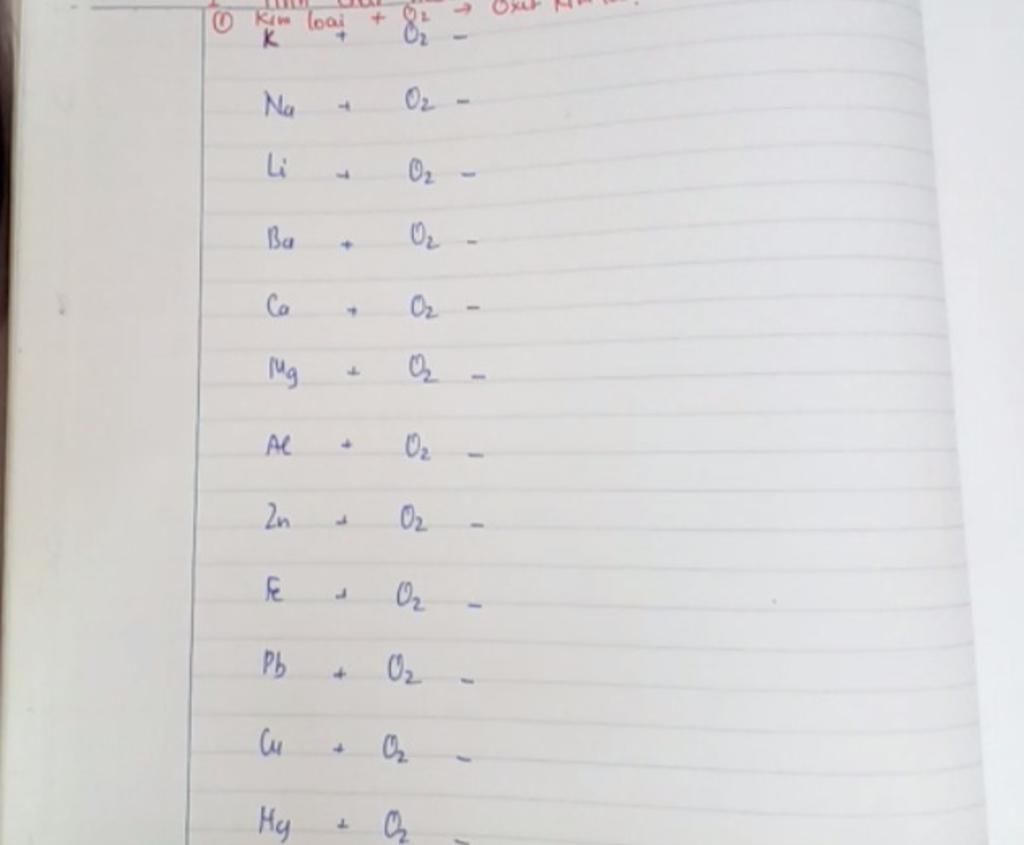 ① Kim loại + O₂ → Oxit
K + O₂ –
Na + O₂ –
Li + O₂ –
Ba + O₂ –
Ca + O₂ –
Mg + O₂ –
Al + O₂ –
Zn + O₂ –
Fe + O₂ –
Pb + O₂ –
Cu + O₂ –
Hg + O₂ –